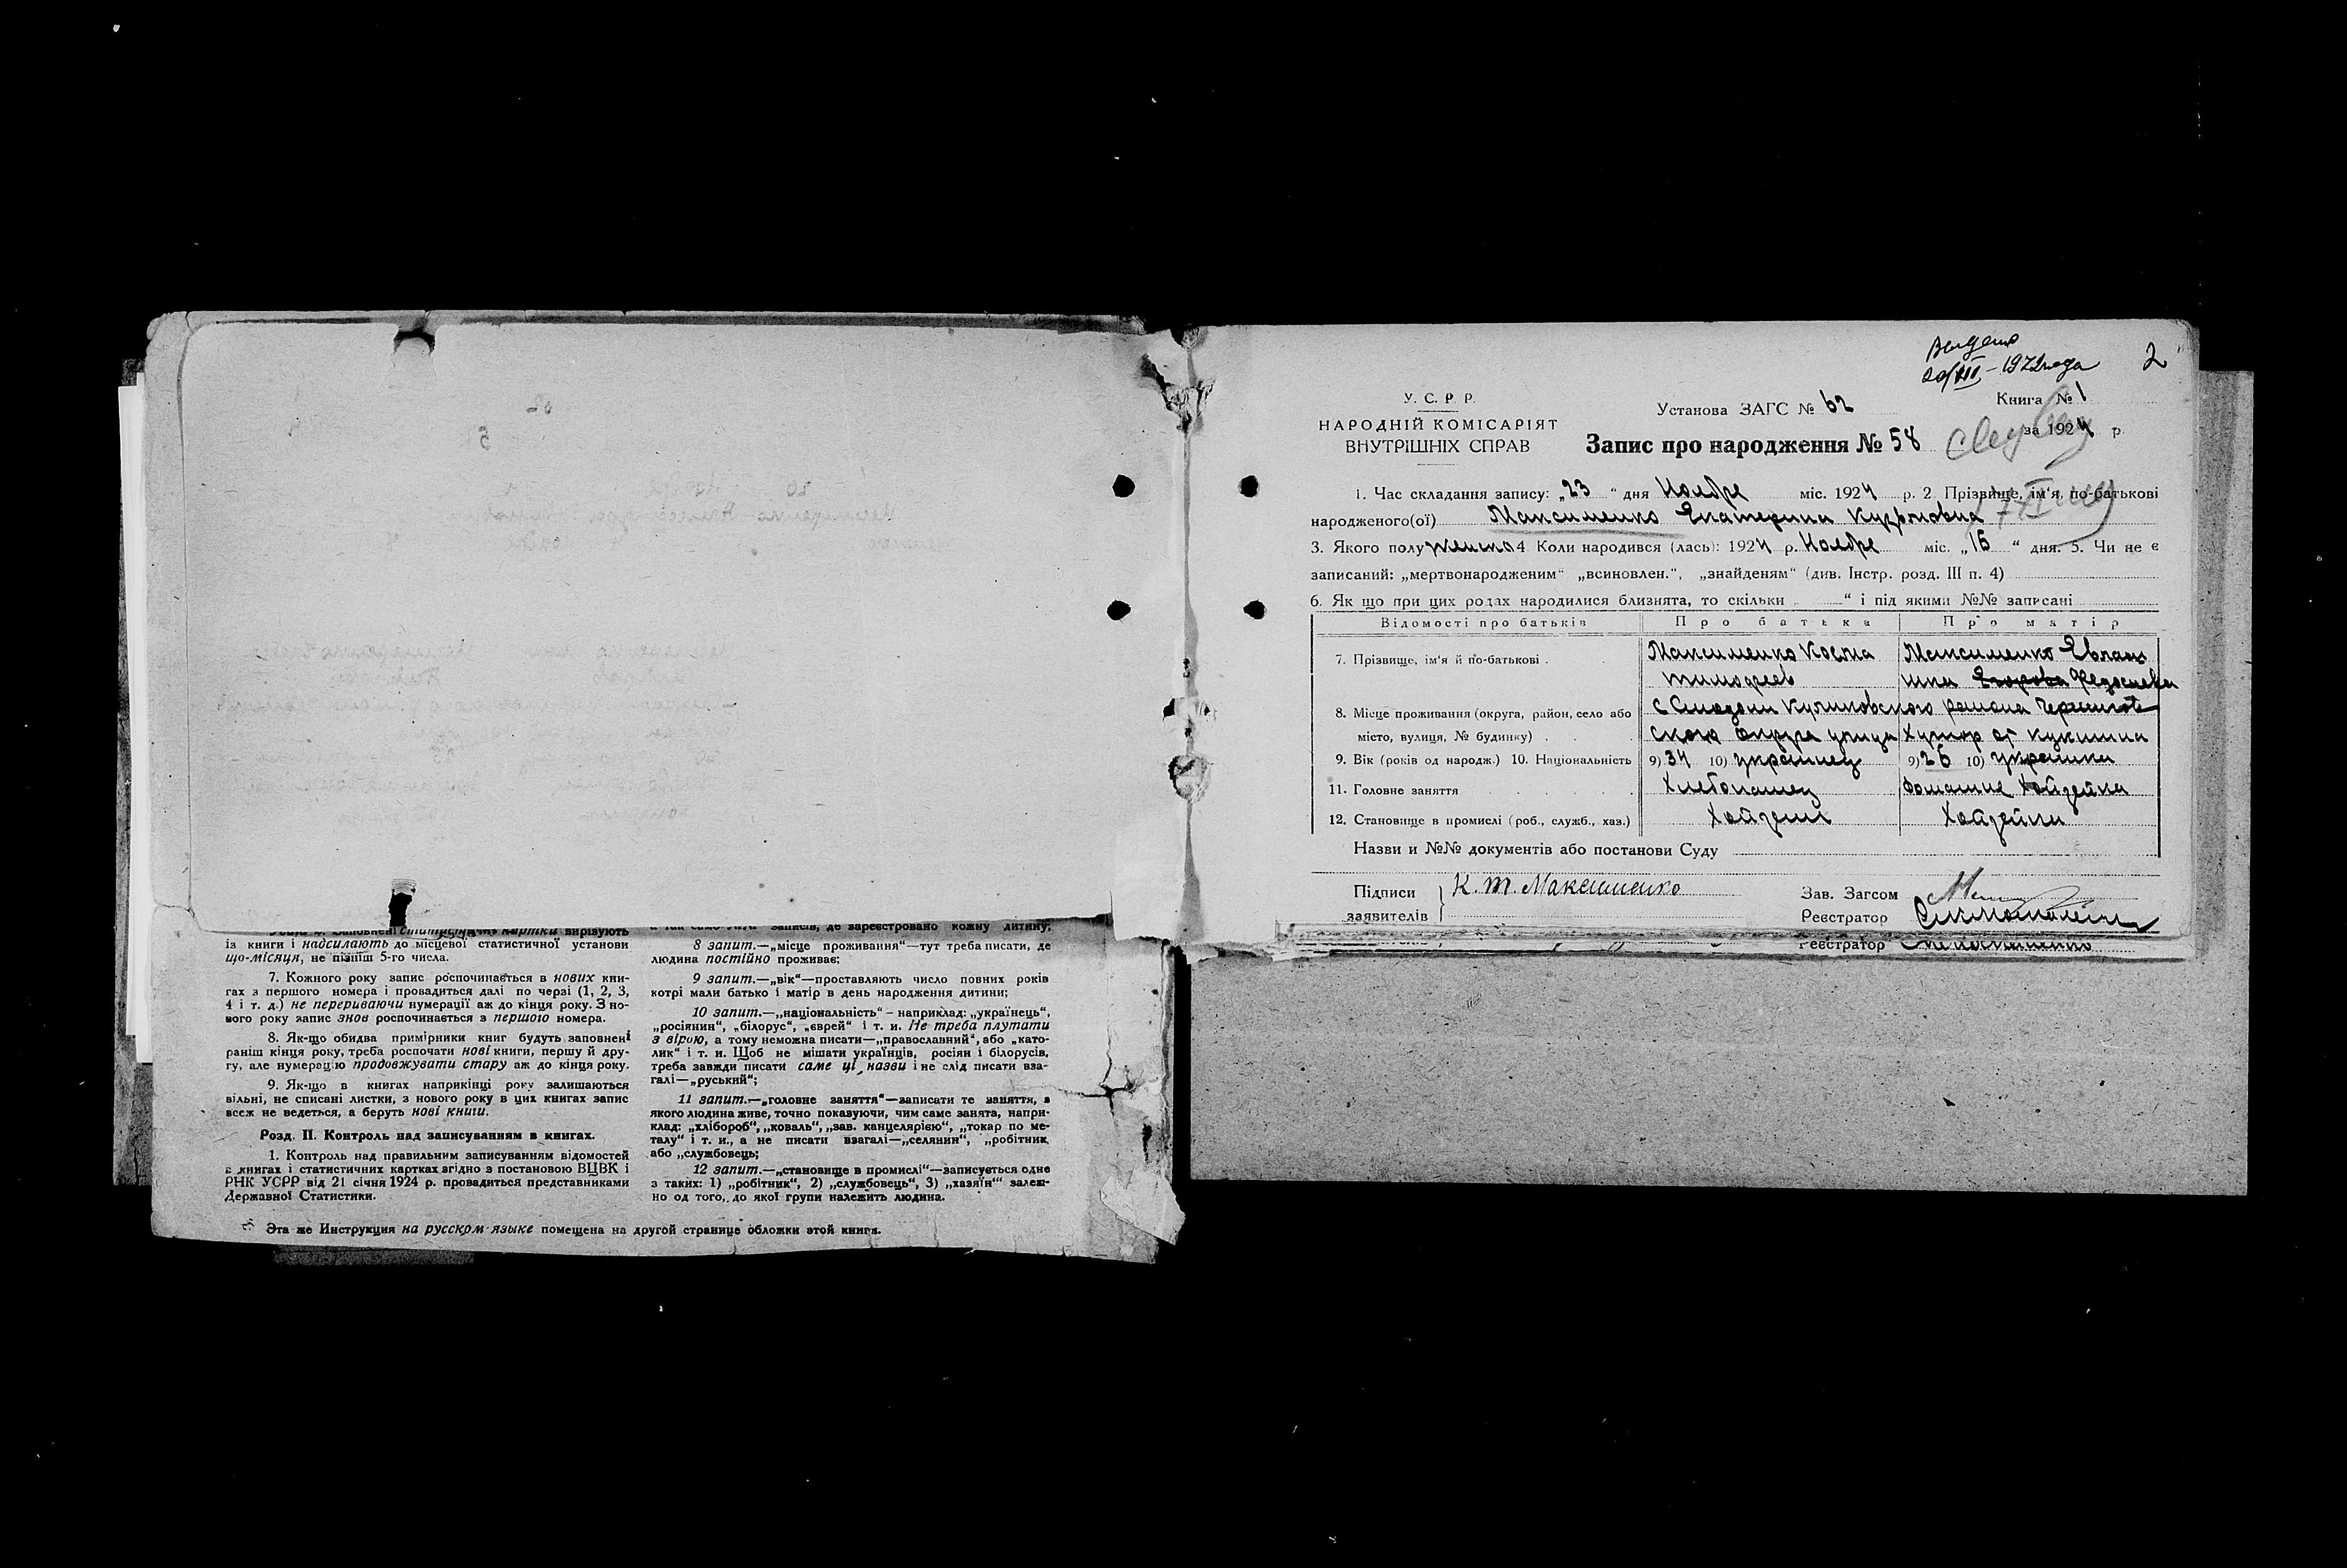 вирізують
із книги і надсилають до місцевої статистичної установи
що-місяця, не пізніш 5-го числа.
7. Кожного року запис роспочинається в нових кни-
гах з першого номера і провадиться далі по черзі (1, 2, 3,
4 і т. д.) не перериваючи нумерації аж до кінця року. З но-
вого року запис знов роспочинається з першого номера.
8. Як-що обидва примірники книг будуть заповнені
раніш кінця року, треба роспочати нові книги, першу й дру-
гу, але нумерацію продовжувати стару аж до кінця року.
9. Як-що в книгах наприкінці року залишаються
вільні, не списані листки, з нового року в цих книгах запис
всеж не ведеться, а беруть нові книги.
Розд. II. Контроль над записуванням в книгах.
1. Контроль над правильним записуванням відомостей
в книгах і статистичних картках згідно з постановою ВЦВК і
РНК УСРР від 21 січня 1924 р. провадиться представниками
Державної Статистики.
записів, де зареєстровано кожну дитину;
8 запит.—„місце проживання“—тут треба писати, де
людина постійно проживає;
9 запит.—„вік“—проставляють число повних років
котрі мали батько і матір в день народження дитини;
10 запит.—„національність“ – наприклад: „українець“,
„росіянин“, „білорус“, „єврей“ і т. и. Не треба плутати
з вірою, а тому неможна писати—„православний“, або „като-
лик“ і т. и. Щоб не мішати українців, росіян і білорусів,
треба завжди писати саме ці назви і не слід писати вза-
галі—„руський“;
11 запит.—„головне заняття“—записати те заняття, з
якого людина живе, точно показуючи, чим саме занята, напри-
клад: „хлібороб“, „коваль“, „зав. канцелярією“, „токар по ме-
талу“ і т. и., а не писати взагалі—„селянин“, „робітник,
або „службовець;
12 запит.—„становище в промислі“—записується одне
з таких: 1) „робітник“, 2) „службовець“, 3) „хазяїн“ залеж-
но од того, до якої групи належить людина.
Эта же Инструкция на русском языке помещена на другой странице обложки этой книги.
2
1972 года
У. С. Р. Р.
НАРОДНІЙ КОМІСАРІЯТ
ВНУТРІШНІХ СПРАВ
Установа ЗАГС № 62
Книга № 1
за 1924 р.
Запис про народження № 58
1. Час складання запису: „23“ дня Ноября міс. 1924 р. 2 Прізвище, ім'я, по-батькові
народженого(ої) Максименко Екатерина Кузьмовна
3. Якого полу женско 4 Коли народився (лась): 1924 р. Ноября міс. „16“ дня. 5. Чи не є
записаний: „мертвонародженим“ „всиновлен.“, „знайденям“ (див. Інстр. розд. III п. 4)
6. Як що при цих родах народилися близнята, то скільки „ “ і під якими №№ записані
Відомості про батьків Про батька Про матір
7. Прізвище, ім'я й по-батькові . Максименко Косма Максименко Евлам
Тимофеев пия Егорова Федосиевна
8. Місце проживання (округа, район, село або с Смолянки Куликовского района Чернигов
місто, вулиця, № будинку) . ского округа улица Хутор
9. Вік (років од народж.) 10. Національність 9) 34 10) украинец 9) 26 10) украинка
11. Головне заняття Хлебопашец домашня Хозяйка
12. Становище в промислі (роб., служб., хаз.) Хозяин Хозяйка
Назви и №№ документів або постанови Суду
Підписи
заявителів
К. Т. Максименко
Зав. Загсом
Реєстратор
Реєстратор